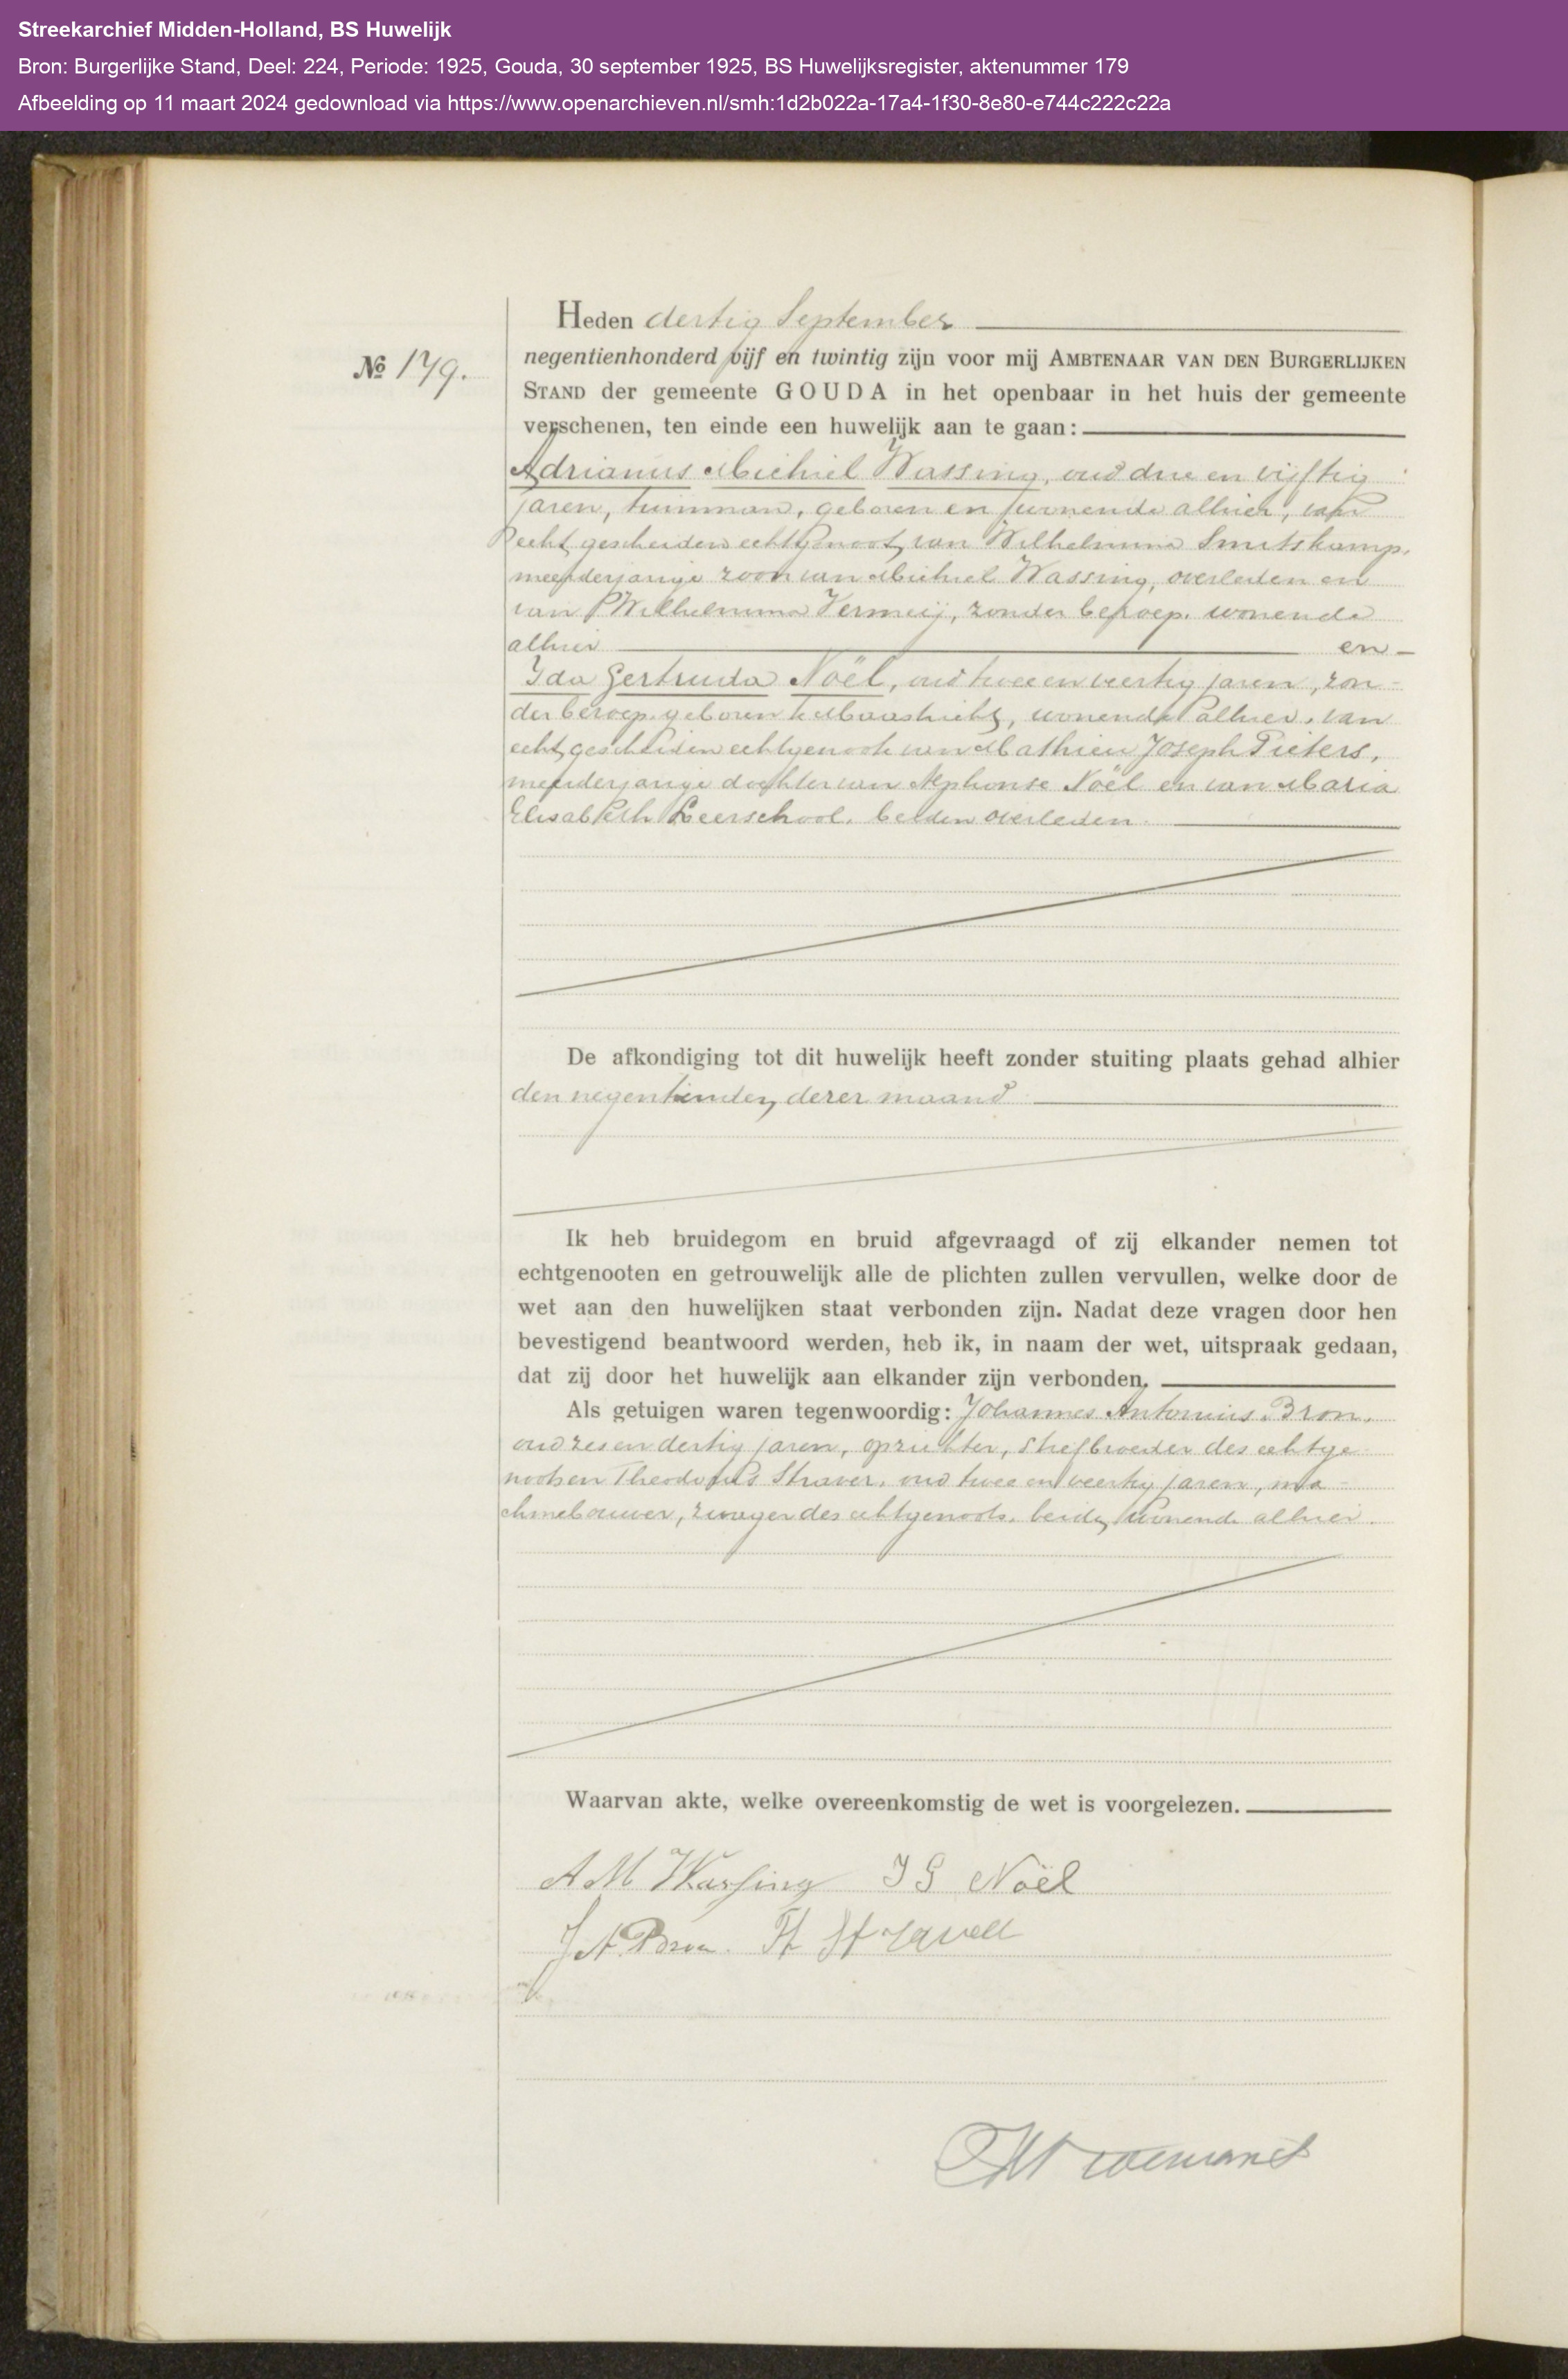 Streekarchief Midden-Holland, BS Huwelijk
Bron: Burgerlijke Stand, Deel: 224, Periode: 1925, Gouda, 30 september 1925, BS Huwelijksregister, aktenummer 179
Afbeelding op 11 maart 2024 gedownload via https://www.openarchieven.nl/smh:1d2b022a-17a4-1f30-8e80-e744c222c22a
Heden dertig September
№ 179.
negentienhonderd vijf en twintig zijn voor mij AMBTENAAR VAN DEN BURGERLIJKEN
STAND der gemeente GOUDA in het openbaar in het huis der gemeente
verschenen, ten einde een huwelijk aan te gaan:
Adrianus Michiel Wassing, oud drie en vijftig
jaren, tuinman, geboren en wonende alhier, van
echt gescheiden echtgenoot van Wilhelmina Smitskamp,
meerderjarige zoon van Michiel Wassing, overleden en
van Wilhelmina Vermeij, zonder beroep, wonende
alhier en
Ida Gertruda Noël, oud twee en veertig jaren, zon-
der beroep, geboren te Maastricht, wonende alhier, van
echt gescheiden echtgenoote van Mathieu Joseph Pieters,
meerderjarige dochter van Alphonse Noël en van Maria
Elisabeth Leerschool, beiden overleden.
De afkondiging tot dit huwelijk heeft zonder stuiting plaats gehad alhier
den negentienden dezer maand
Ik heb bruidegom en bruid afgevraagd of zij elkander nemen tot
echtgenooten en getrouwelijk alle de plichten zullen vervullen, welke door de
wet aan den huwelijken staat verbonden zijn. Nadat deze vragen door hen
bevestigend beantwoord werden, heb ik, in naam der wet, uitspraak gedaan,
dat zij door het huwelijk aan elkander zijn verbonden.
Als getuigen waren tegenwoordig: Johannes Antonius Bron,
oud zes en dertig jaren, opzichter, stiefbroeder des echtge-
noots en Theodorus Straver, oud twee en veertig jaren, ma-
chinebouwer, zwager des echtgenoots, beiden wonende alhier.
Waarvan akte, welke overeenkomstig de wet is voorgelezen.
A M Wassing I G Noël
J A Bron. Th Straver